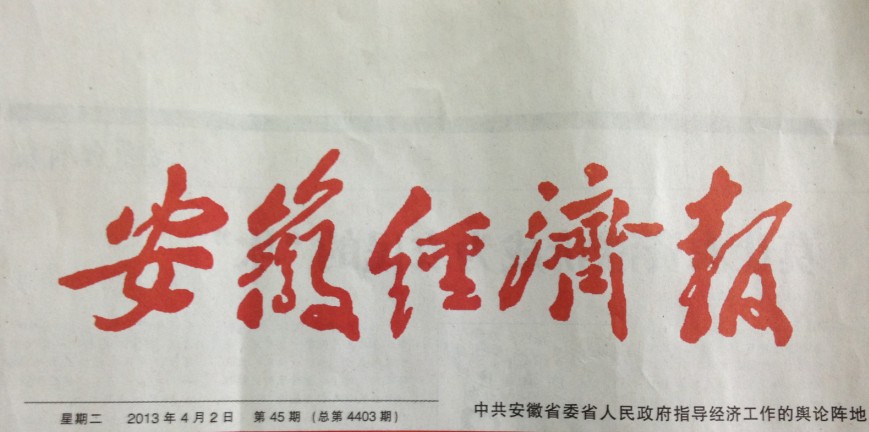 安徽經濟報
星期二 2013年4月2日 第45期 (总第4403期)
中共安徽省委省人民政府指导经济工作的舆论阵地